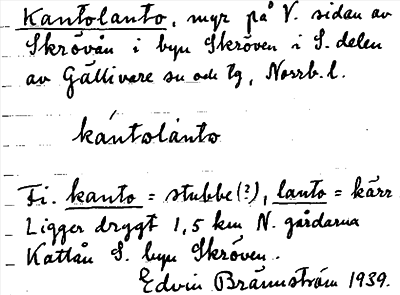 Kantolanto, myr på V. sidan av
Skrövån i byn Skröven i S. delen
av Gällivare sn och tg, Norrb. l.
kántolànto
Fi. kanto = stubbe (?), lanto = kärr
Ligger drygt 1,5 km N. gårdarna
Kattån S. byn Skröven.
Edvin Brännström 1939.